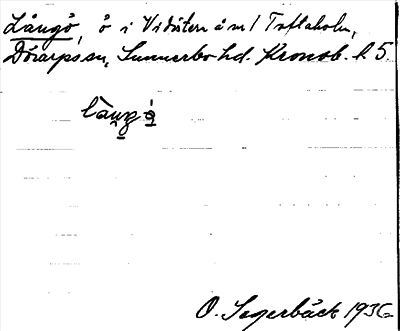 Långö, ö i Vidöstern å m/ Toftaholm,
Dörarps sn, Sunnerbo hd. Kronob. l. 5.
O. Segerbäck 1936